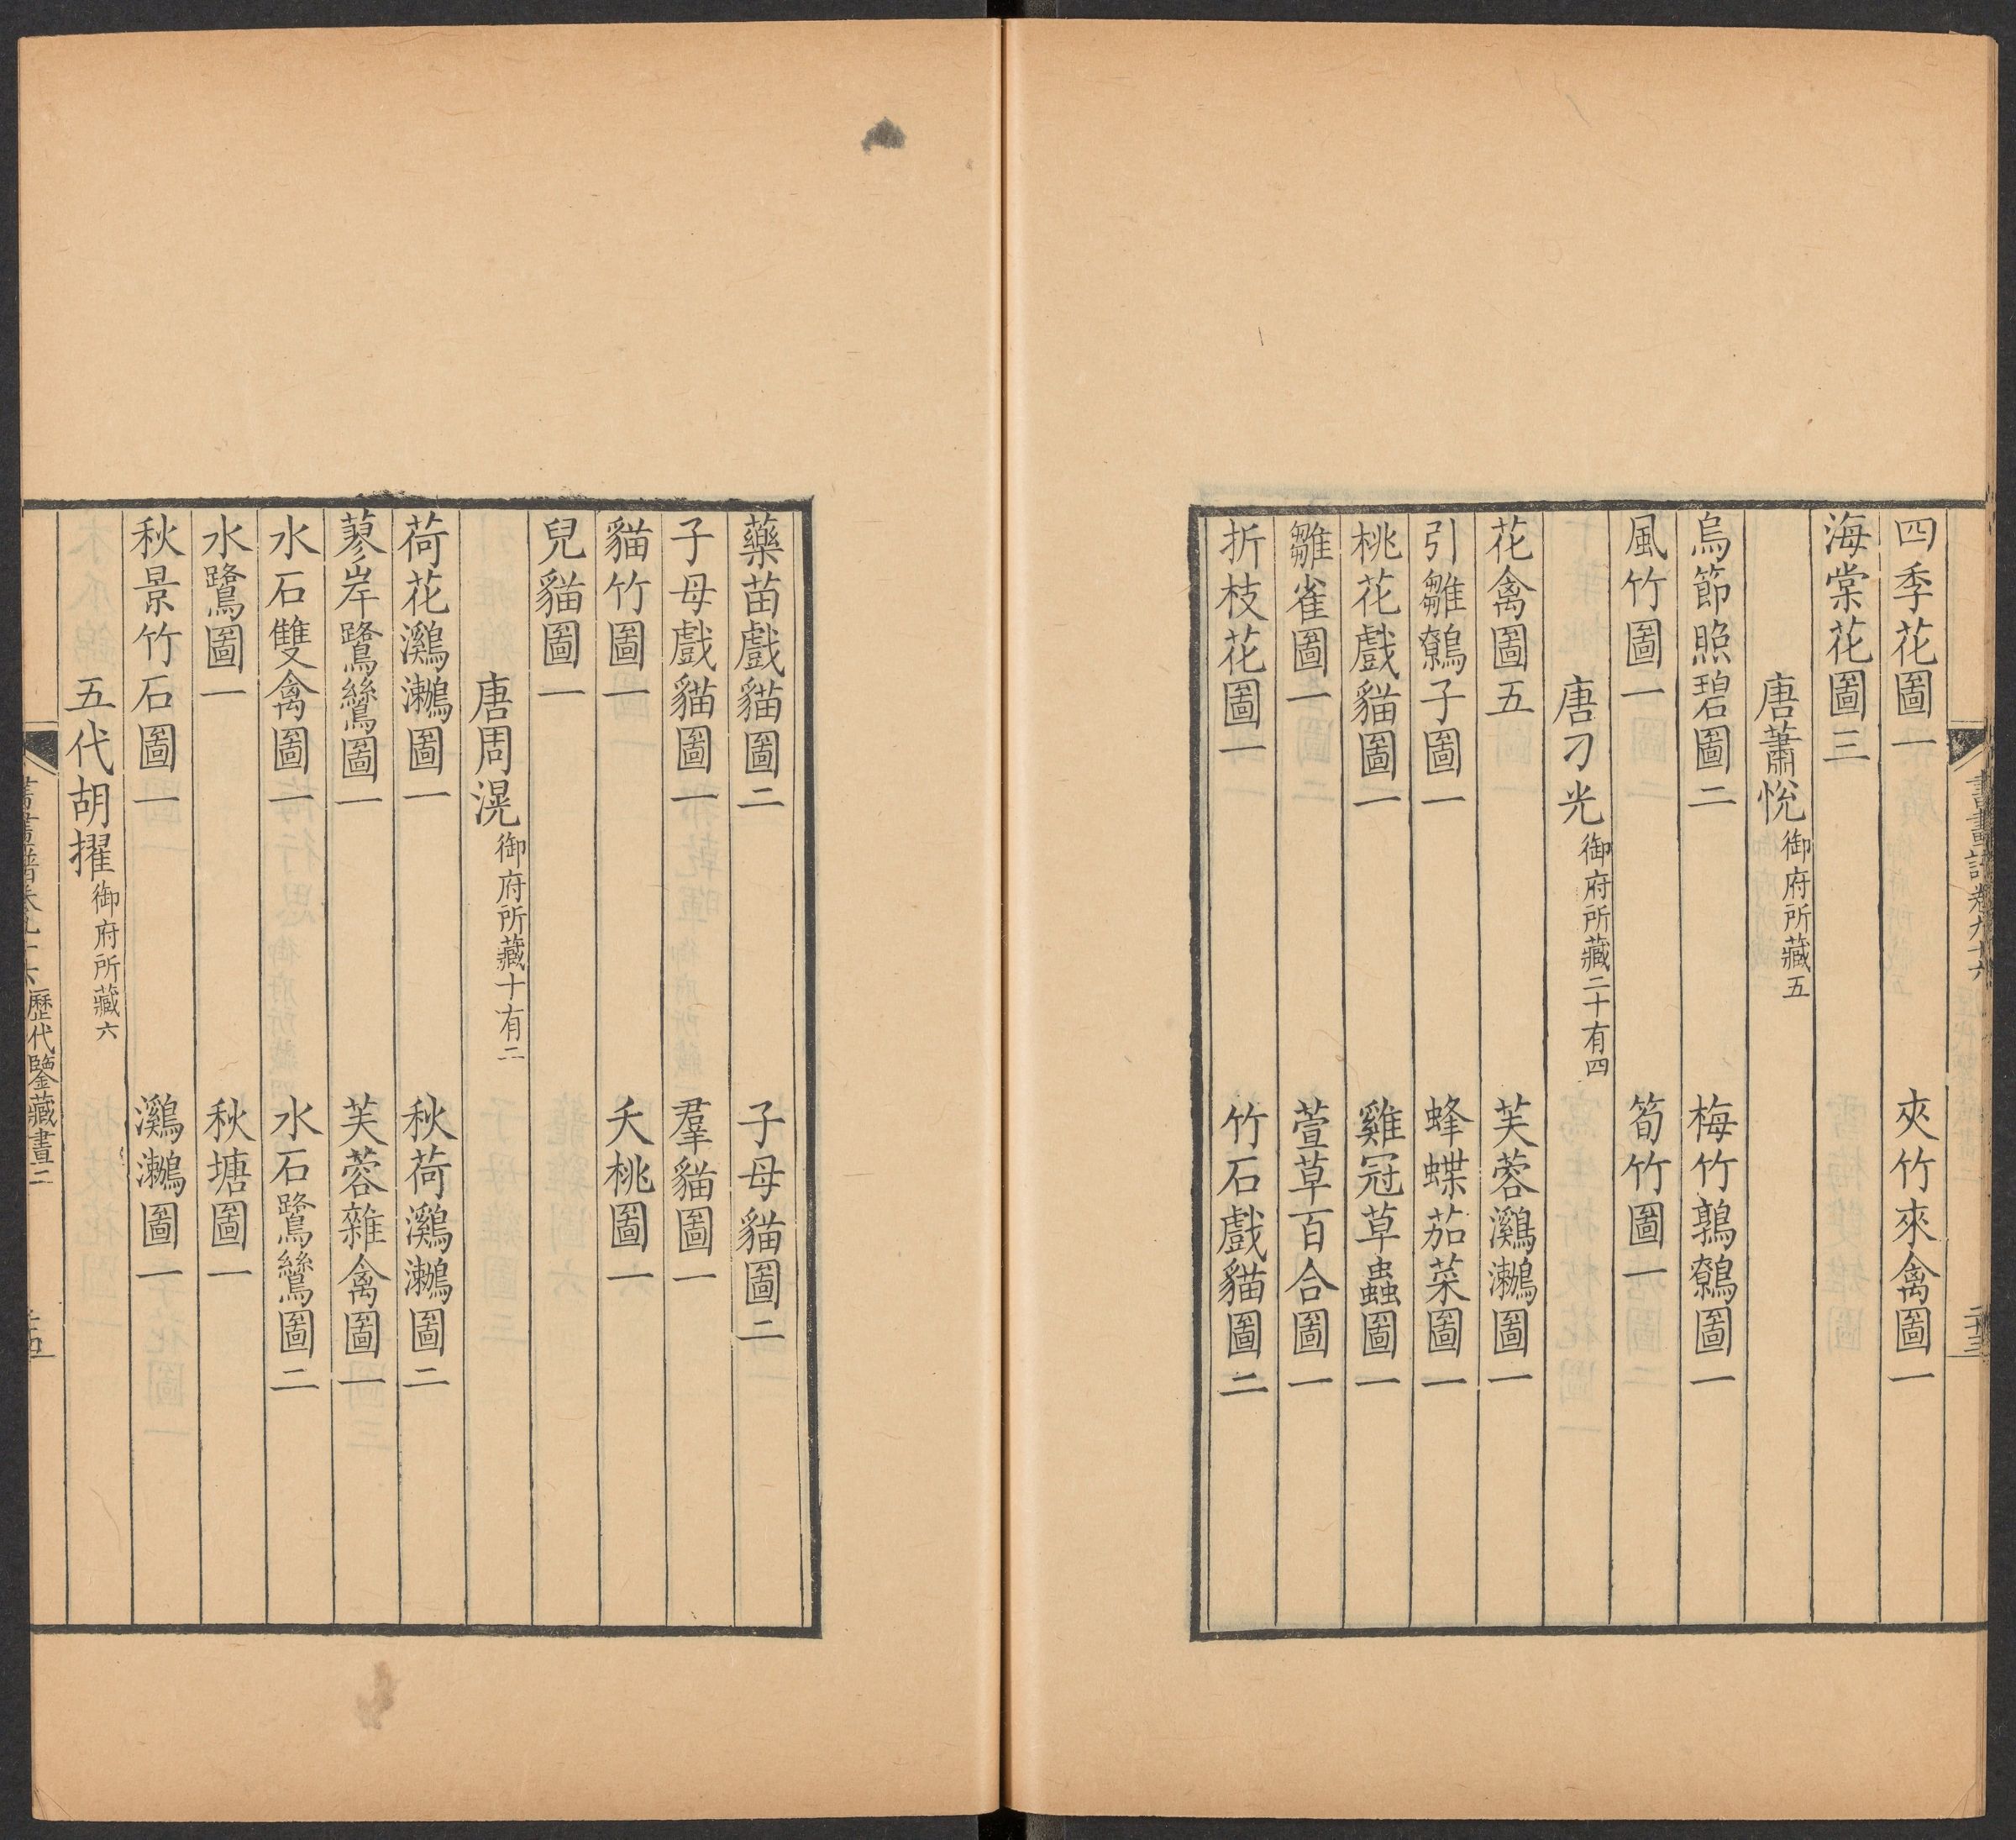 四季花圖一 夾竹來禽圖一
海棠花圖三
唐蕭悅御府所藏五
烏節照碧圖二 梅竹鶉鷯圖一
風竹圖一 筍竹圖一
唐刁光御府所藏二十有四
花禽圖五 芙蓉鸂鷘圖一
引雛鷯子圖一 蜂蝶茄菜圖一
桃花戲貓圖一 雞冠草蟲圖一
雛雀圖一 萱草百合圖一
折枝花圖一 竹石戲貓圖二
藥苗戲貓圖二 子母貓圖二
子母戲貓圖一 羣貓圖一
貓竹圖一 夭桃圖一
兒貓圖一
唐周滉御府所藏十有二
荷花鸂鷘圖一 秋荷鸂鷘圖二
蓼岸鷺鷥圖一 芙蓉雜禽圖一
水石雙禽圖一 水石鷺鷥圖二
水鷺圖一 秋塘圖一
秋景竹石圖一 鸂鷘圖一
五代胡擢御府所藏六
歷代鑒藏畫二